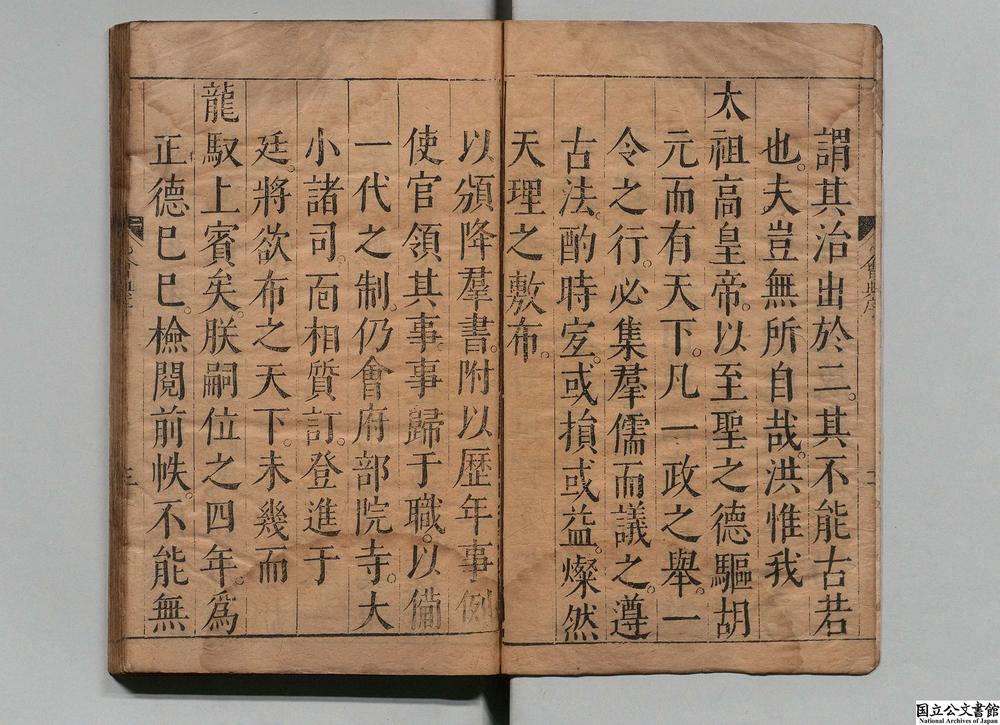 謂其治出於二。其不能古若
也。夫豈無所自哉。洪惟我
太祖高皇帝。以至聖之德驅胡
元而有天下。凡一政之舉。一
令之行。必集羣儒而議之。遵
古法。酌時宐。或損或益。燦然
天理之敷布。
以頒降羣書。附以歴年事例
使官領其事。事歸于職。以備
一代之制。仍會府部院寺。大
小諸司。靣相質訂。登進于
廷。將欲布之天下。未幾而
龍馭上賓矣。朕嗣位之四年。爲
正德巳巳。檢閱前帙。不能無
會典序
三
国立公文書館
National Archives of Japan